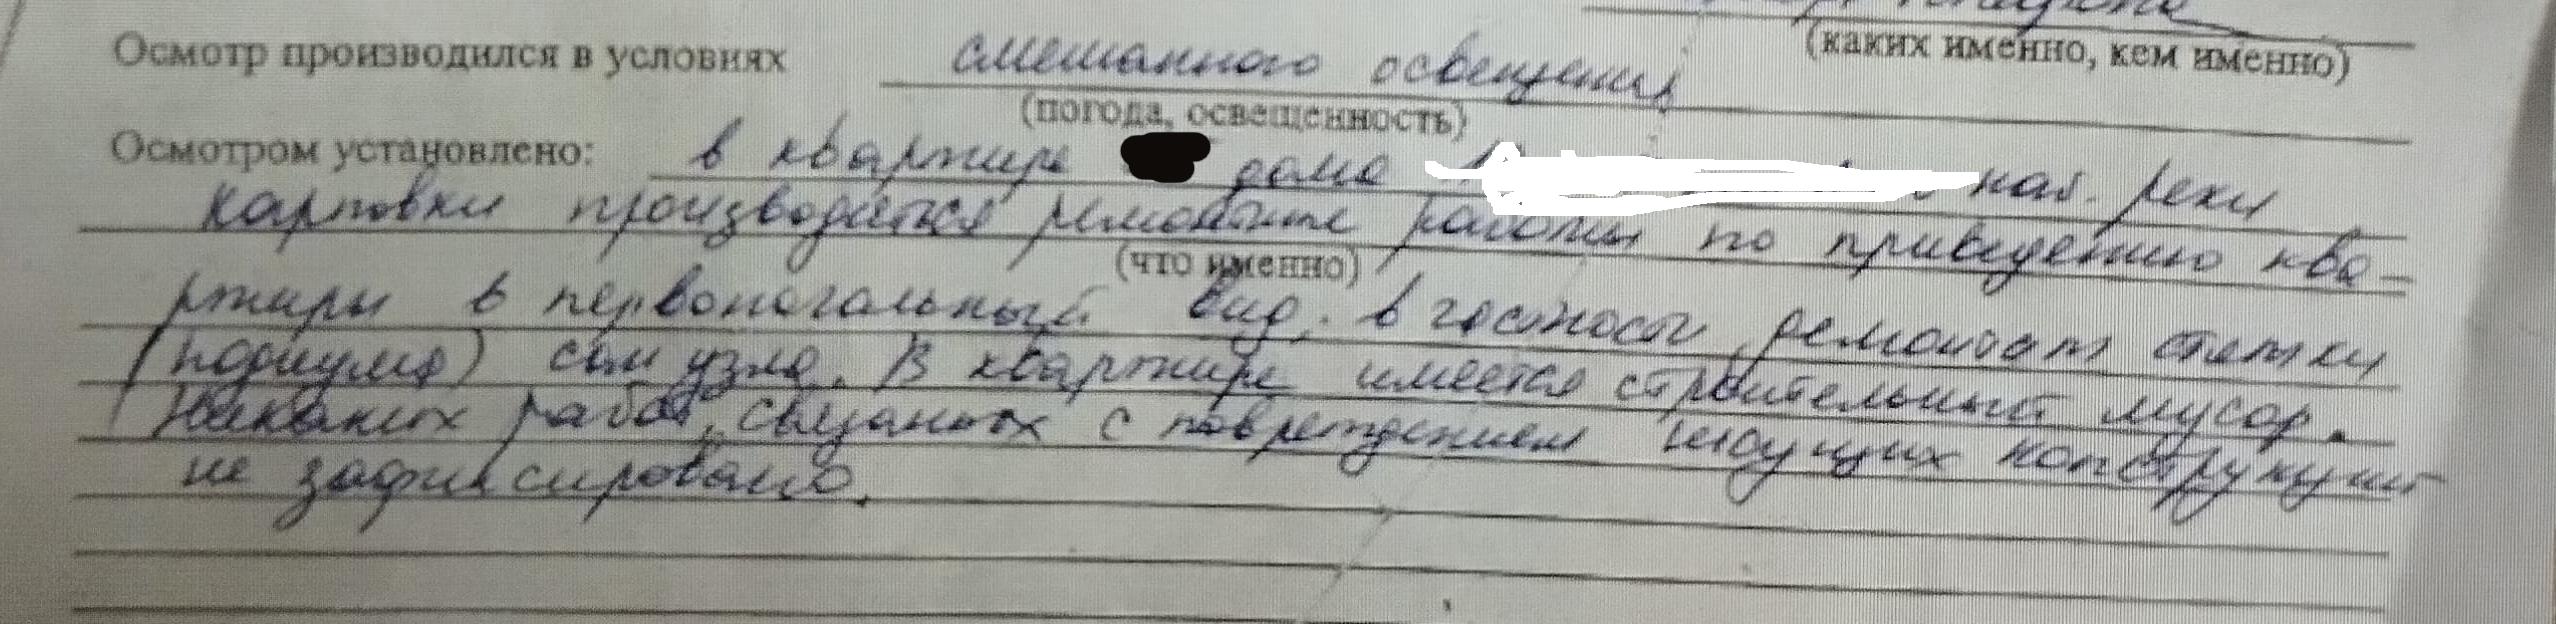 (каких именно, кем именно)
Осмотр производился в условиях смешанного освещения
(погода, освещенность)
Осмотром установлено: в квартире дома наб. реки
Карповки производятся ремонтные работы по приведению ква-
(что именно)
ртиры в первоначальный вид, в частности ремонтат стяжки
(подиума) сан узла. В квартире имеется строительный мусор.
Никаких работ, связанных с повреждением несущих конструкций
не зафиксировано.